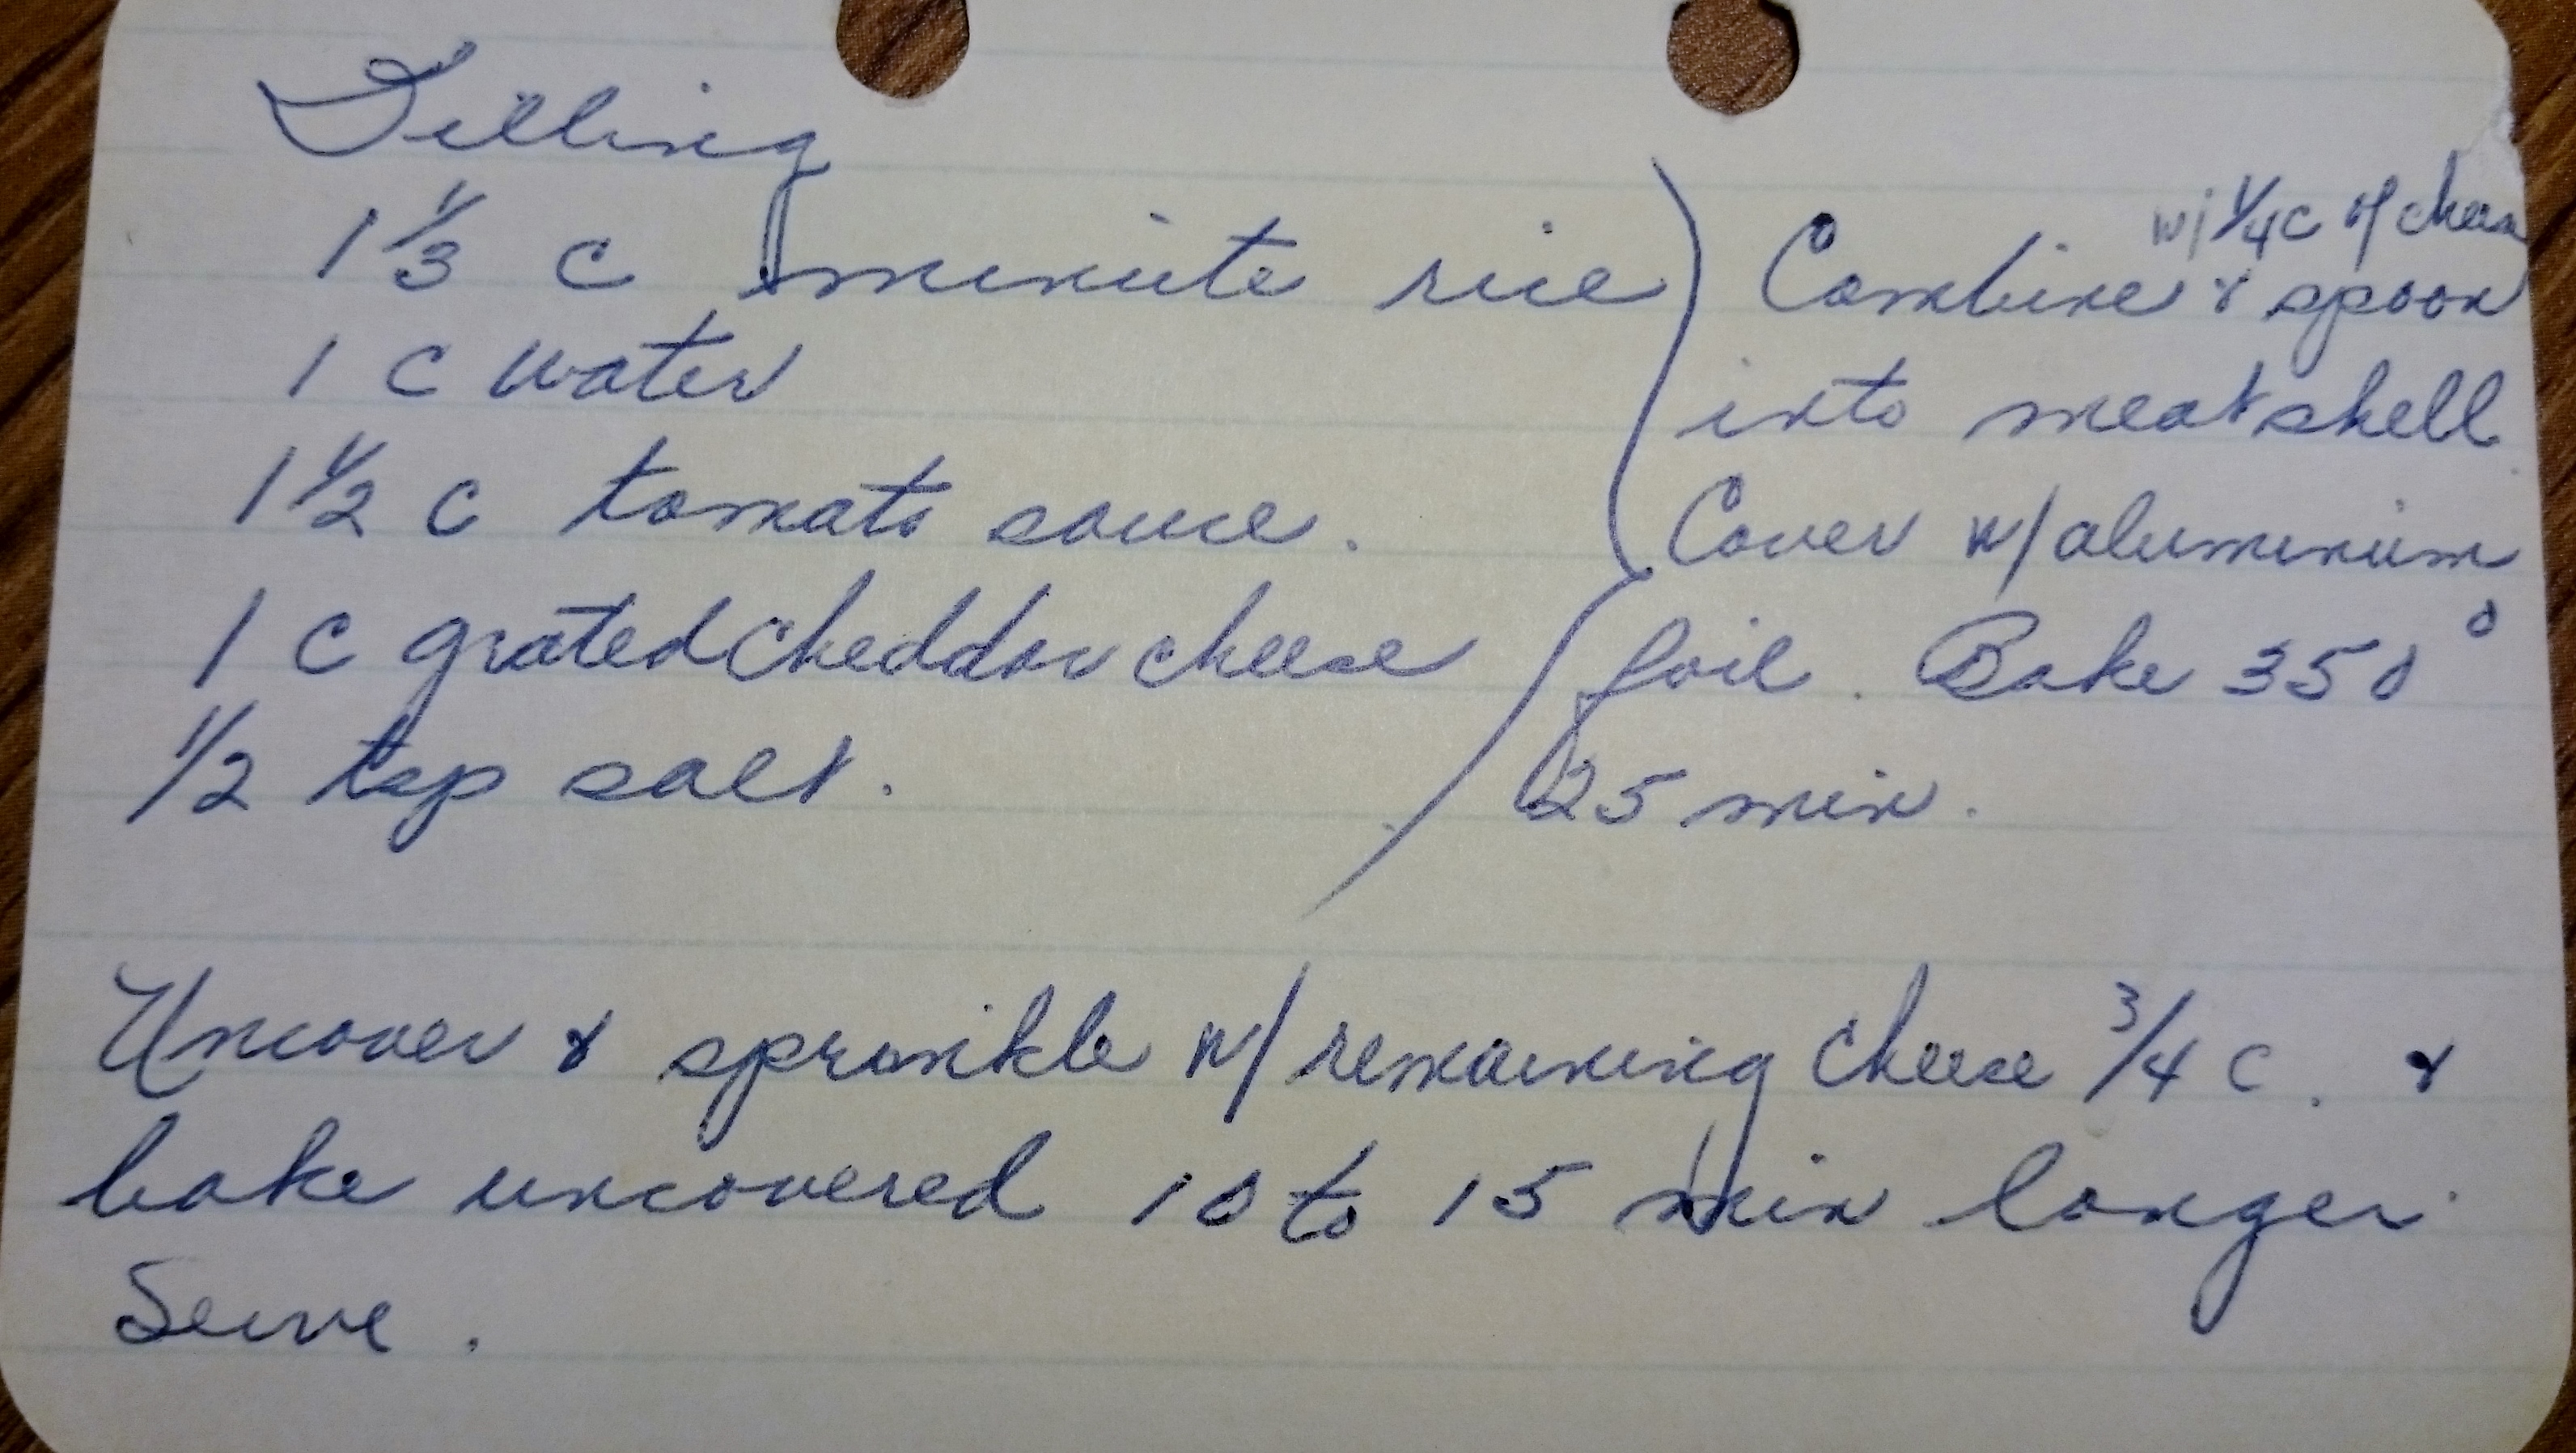 Filling
1 1/3 c minute rice
1 c water
1 1/2 c tomato sauce.
1 c grated cheddar cheese
1/2 tsp salt.
w/ 1/4 c of cheese
Combine & spoon
into meat shell
Cover w/ aluminum
foil. Bake 350°
25 min.
Uncover & sprinkle w/ remaining cheese 3/4 c. &
bake uncovered 10 to 15 min longer.
Serve.